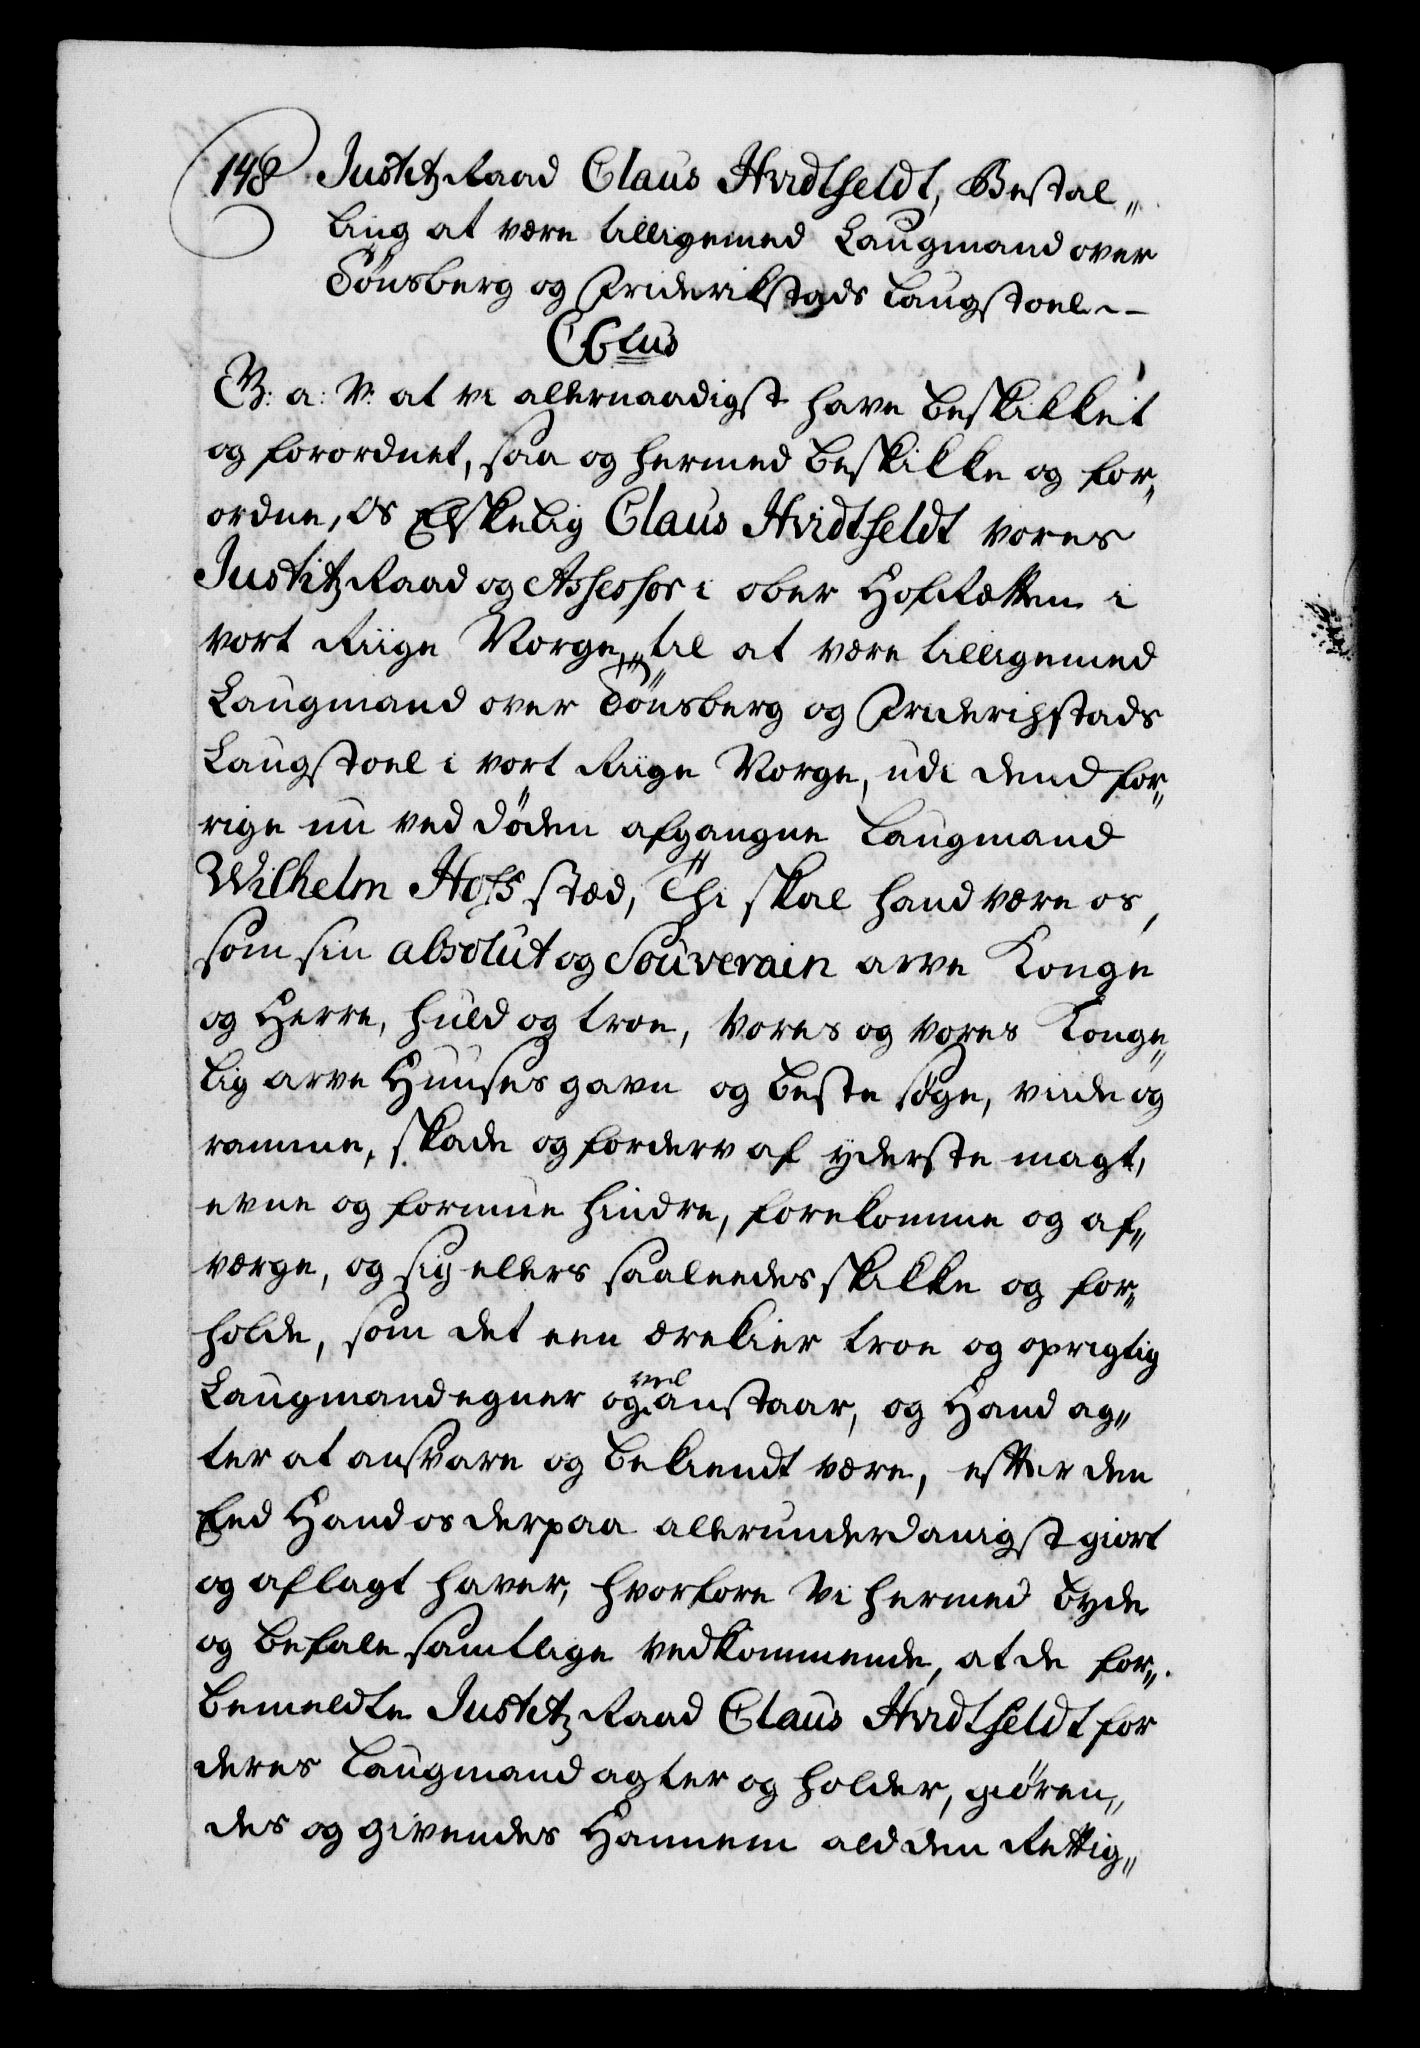 148 Justitz Raad Claus Hvidtfeldt, Bestal„
ling at være tilligemed Laugmand over
Tönsberg og Friderikstads Laugstoel.
C6tus
G: a: V: at vi allernaadigst have beskikket
og forordnet, saa og hermed beskikke og for„
ordne, os Elskelig Claus Hvidtfeldt vores
Justitz Raad og Assessor i ober Hof Retten i
vort Riige Norge, til at være tilligemed
Laugmand over Tönsberg og Friderichstads
Laugstoel i vort Riige Norge, udi dend for„
rige nu ved döden afgangne Laugmand
Wilhelm Hofs stæd, Thi skal hand være os,
som sin absolut og Souverain arve Konge
og Herre, huld og troe, Vores og Vores Konge„
lig arve Huuses gavn og beste søge, viide og
ramme, skade og forderv af yderste magt,
evne og formue hindre, forekomme og af„
værge, og sig ellers saaleedes skikke og for„
holde, som det een ærekier troe og oprigtig
Laugmand egner og vel anstaar, og Hand ag„
ter at ansvare og bekiendt være, efter den
Eed Hand os derpaa allerunderdanigst giort
og aflagt haver, hvorfore Vi hermed byde
og befale samtlige vedkommende, at de for„
bemeldte Justitz Raad Claus Hvidtfeldt for
deres Laugmand agter og holder, giören„
des og givendes Hannem ald den Rettig„